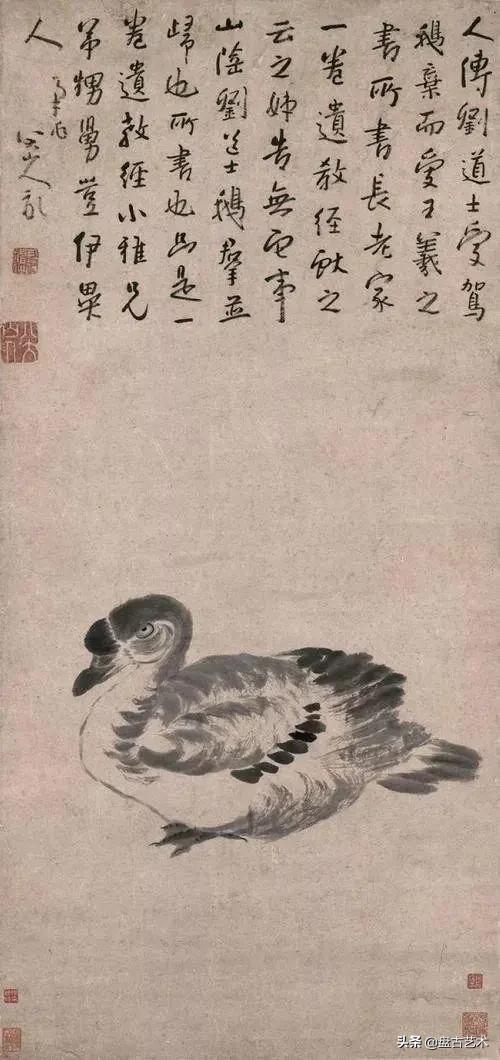 人傳劉道士愛駕
鵝棄而愛王羲之
書所書長老家
一卷遺教經獻之
云之姊告無事
山陰劉道士鵝羣並
歸也所書也是一
卷遺教經小雅兄
弟甥舅豈伊異
人
八大山人記
头条 @盘古艺术